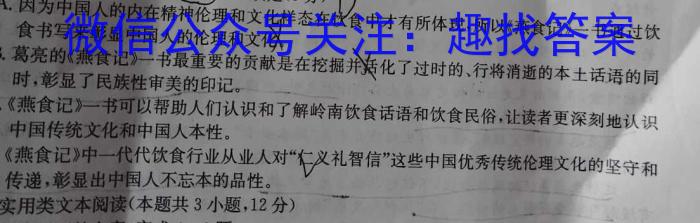 因为中国人的内在精神伦理和文化
食书写来彰显中国人的伦理和文化
微信公众号关注：趣找答案
葛亮的《燕食记》一书最重要的贡献是在挖掘并转化了过时的、行将消逝的本土话语的同
时,彰显了民族性审美的印记。
《燕食记》一书可以帮助人们认识和了解岭南饮食话语和饮食民俗,让读者更深刻地认识
中国传统文化和中国人本性。
《燕食记》中一代代饮食行业从业人对“仁义礼智信”这些中国优秀传统伦理文化的坚守和
传递,彰显出中国人不忘本的品性。
实用类文本阅读(本题共3小题,12分)